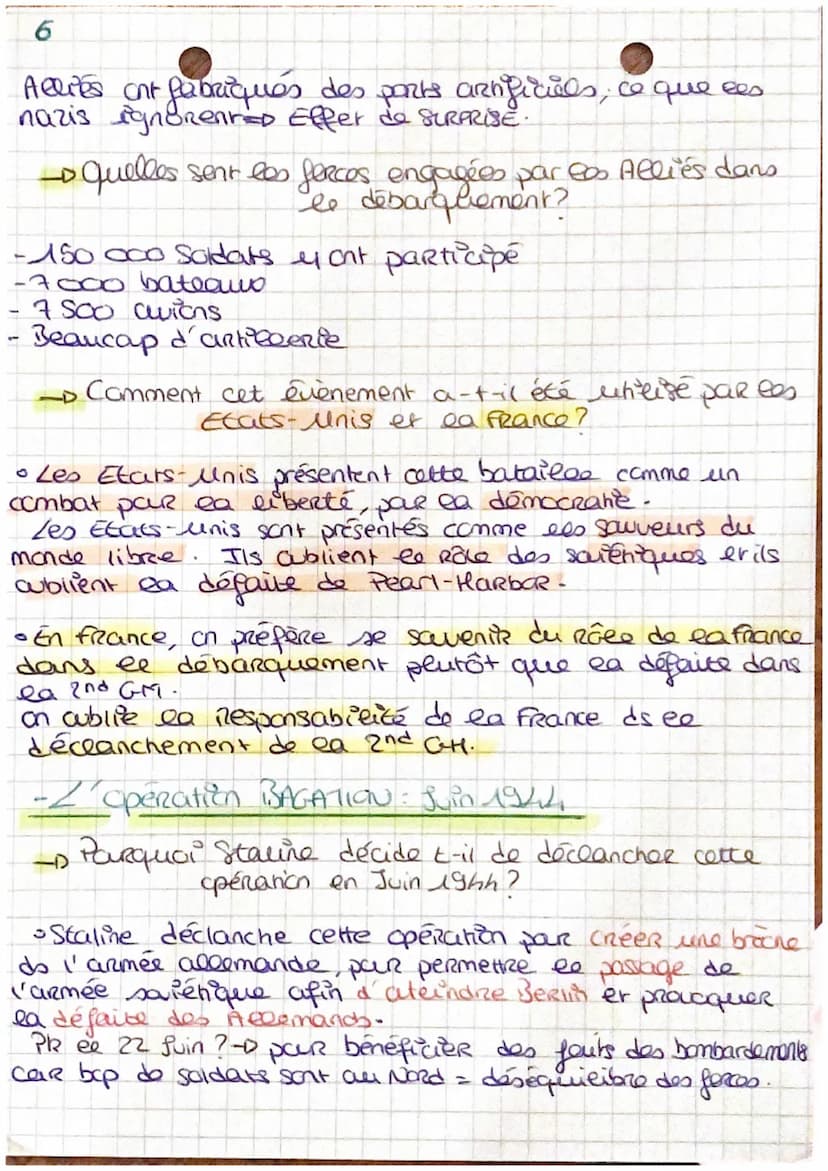 6
Alliés ont fabriqués des ports artificiels, ce que les
nazis ignorent => Effet de SURPRISE.
→ Quelles sont les forces engagées par les Alliés dans
le débarquement ?
- 150 000 Soldats y ont participé
- 7 000 bateaux
- 7 500 avions
- Beaucoup d'artillerie
→ Comment cet évènement a-t-il été utilisé par les
Etats-Unis et la France ?
• Les Etats-Unis présentent cette bataille comme un
combat pour la liberté, par la démocratie.
Les Etats-Unis sont présentés comme les sauveurs du
monde libre. Ils oublient le rôle des soviétiques et ils
oublient la défaite de Pearl-Harbor.
• En France, on préfère se souvenir du rôle de la France
dans le débarquement plutôt que la défaite dans
la 2nd GM.
On oublie la responsabilité de la France ds le
déclanchement de la 2nd GM.
- L'opération BAGATION : Juin 1944
→ Pourquoi Staline décide t-il de déclancher cette
opération en Juin 1944 ?
• Staline déclanche cette opération pour créer une brèche
ds l'armée allemande, pour permettre le passage de
l'armée soviétique afin d'ateindre Berlin et provoquer
la défaite des Allemands.
Pk le 22 Juin ? → pour bénéficier des jours des bombardements
car bcp de soldats sont au Nord = déséquilibre des forces.